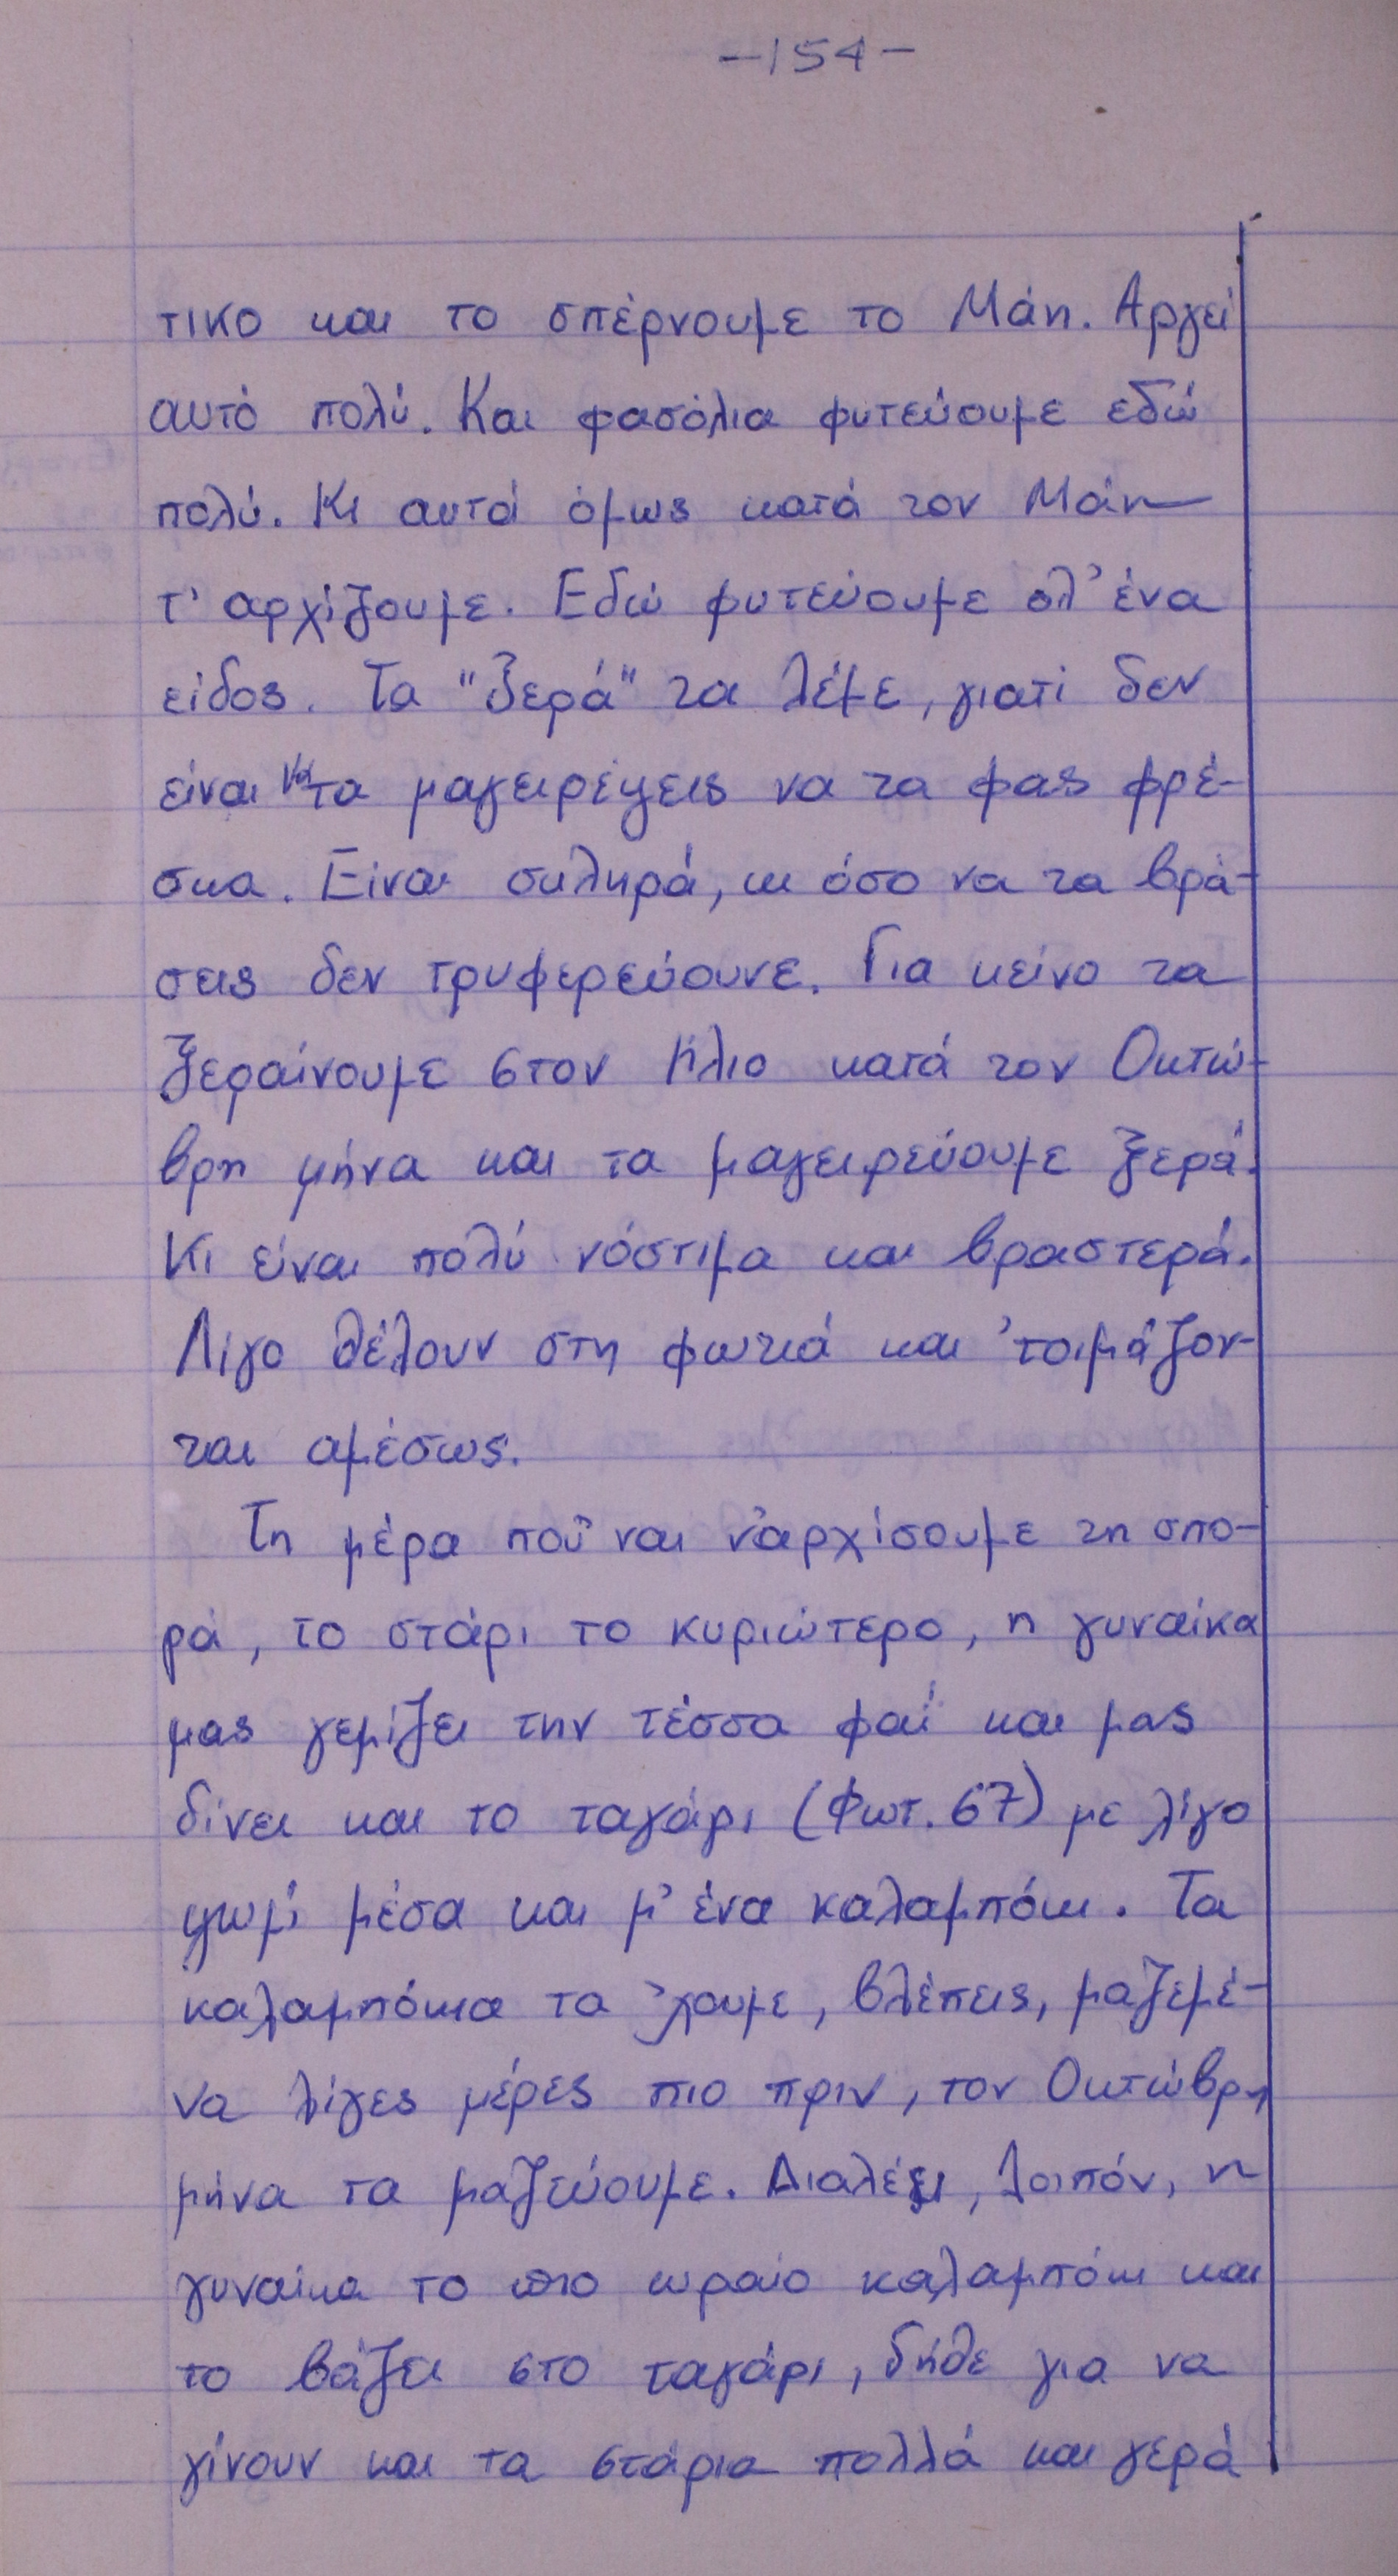 -154-
τικο και το σπέρνουμε το Μάη. Αργεί
αυτό πολύ. Και φασόλια φυτεύουμε εδώ
πολύ. Κι αυτά όμως κατά τον Μάη
τ' αρχίζουμε. Εδώ φυτεύουμε ολ' ένα
είδος. Τα "ξερά" τα λέμε, γιατί δεν
είναι να τα μαγειρέψεις να τα φας φρέ-
σκα. Είναι σκληρά, κι όσο να τα βρά-
σεις δεν τρυφερεύουνε. Για κείνο τα
ξεραίνουμε στον ήλιο κατά τον Οκτώ-
βρη μήνα και τα μαγειρεύουμε ξερά.
Κι είναι πολύ νόστιμα και βραστερά.
Λίγο θέλουν στη φωτιά και 'τοιμάζον-
ται αμέσως.
Τη μέρα πού ναι ν' αρχίσουμε τη σπο-
ρά, το στάρι το κυριώτερο, η γυναίκα
μας γεμίζει την τέσσα φαΐ και μας
δίνει και το ταγάρι (Φωτ. 67) με λίγο
ψωμί μέσα και μ' ένα καλαμπόκι. Τα
καλαμπόκια τα 'χουμε, βλέπεις, μαζεμέ-
να λίγες μέρες πιο πριν, τον Οκτώβρη
μήνα τα μαζεύουμε. Διαλέει, λοιπόν, η
γυναίκα το πιο ωραίο καλαμπόκι και
το βάζει στο ταγάρι, δήθε για να
γίνουν και τα στάρια πολλά και γερά